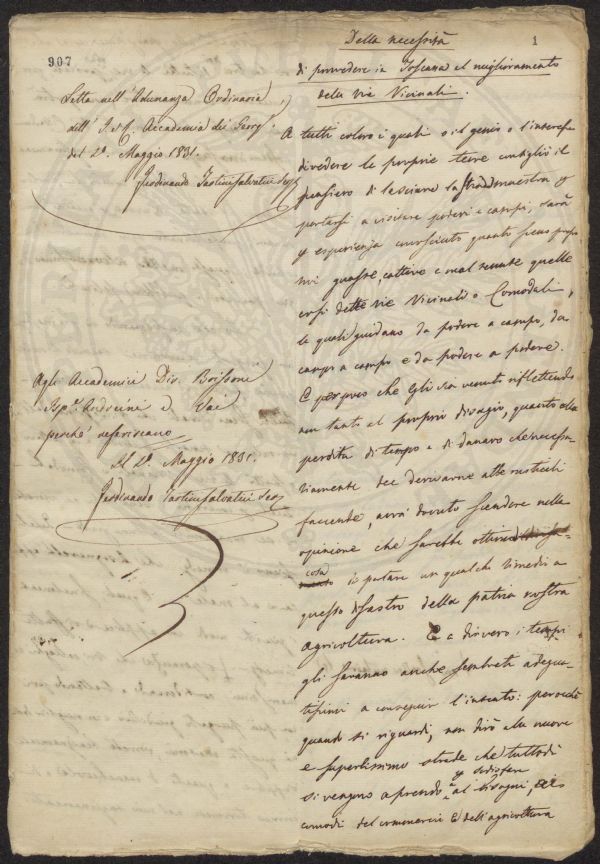 907
1
Letta nell' Adunanza Ordinaria
dell' I. e R. Accademia dei Georg.
del 1831.
Ferdinando Tartini Salvatici Seg.
Agli Accademici Div.
e Vai
perchè referiscano
Il Maggio 1831.
Ferdinando Tartini Salvatici Seg.
3
Della necessità
di provvedere in Toscana al miglioramento
delle Vie Vicinali.
A tutti coloro i quali o il genio o l'interesse
di vedere le proprie terre consigliò il
pensiero di lasciare la strada maestra p
portarsi a visitare poderi e campi, sarà
p esperienza conosciuto quanto sieno pessi
mi guaste, cattive e mal tenute quelle
così dette vie Vicinali o Comodali,
le quali guidano da podere a campo, da
campo a campo e da podere a podere.
E per poco che egli sia venuto riflettendo
non tanto al proprio disagio, quanto alla
perdita di tempo e di danaro che necessa
riamente dee derivarne alle rusticali
faccende, avrà dovuto scendere nella
opinione che sarebbe ottima
cosa il portare un qualche rimedio a
questo disastro della patria nostra
agricoltura. E a dir vero i tempi
gli saranno anche sembrati adegua-
tissimi a conseguir l'intento: perocchè
quando si riguardi, non dirò alle nuove
e superbissime strade che tuttodì
si vengono aprendo p sodisfare ai bisogni, ai
comodi del commercio e dell'agricoltura